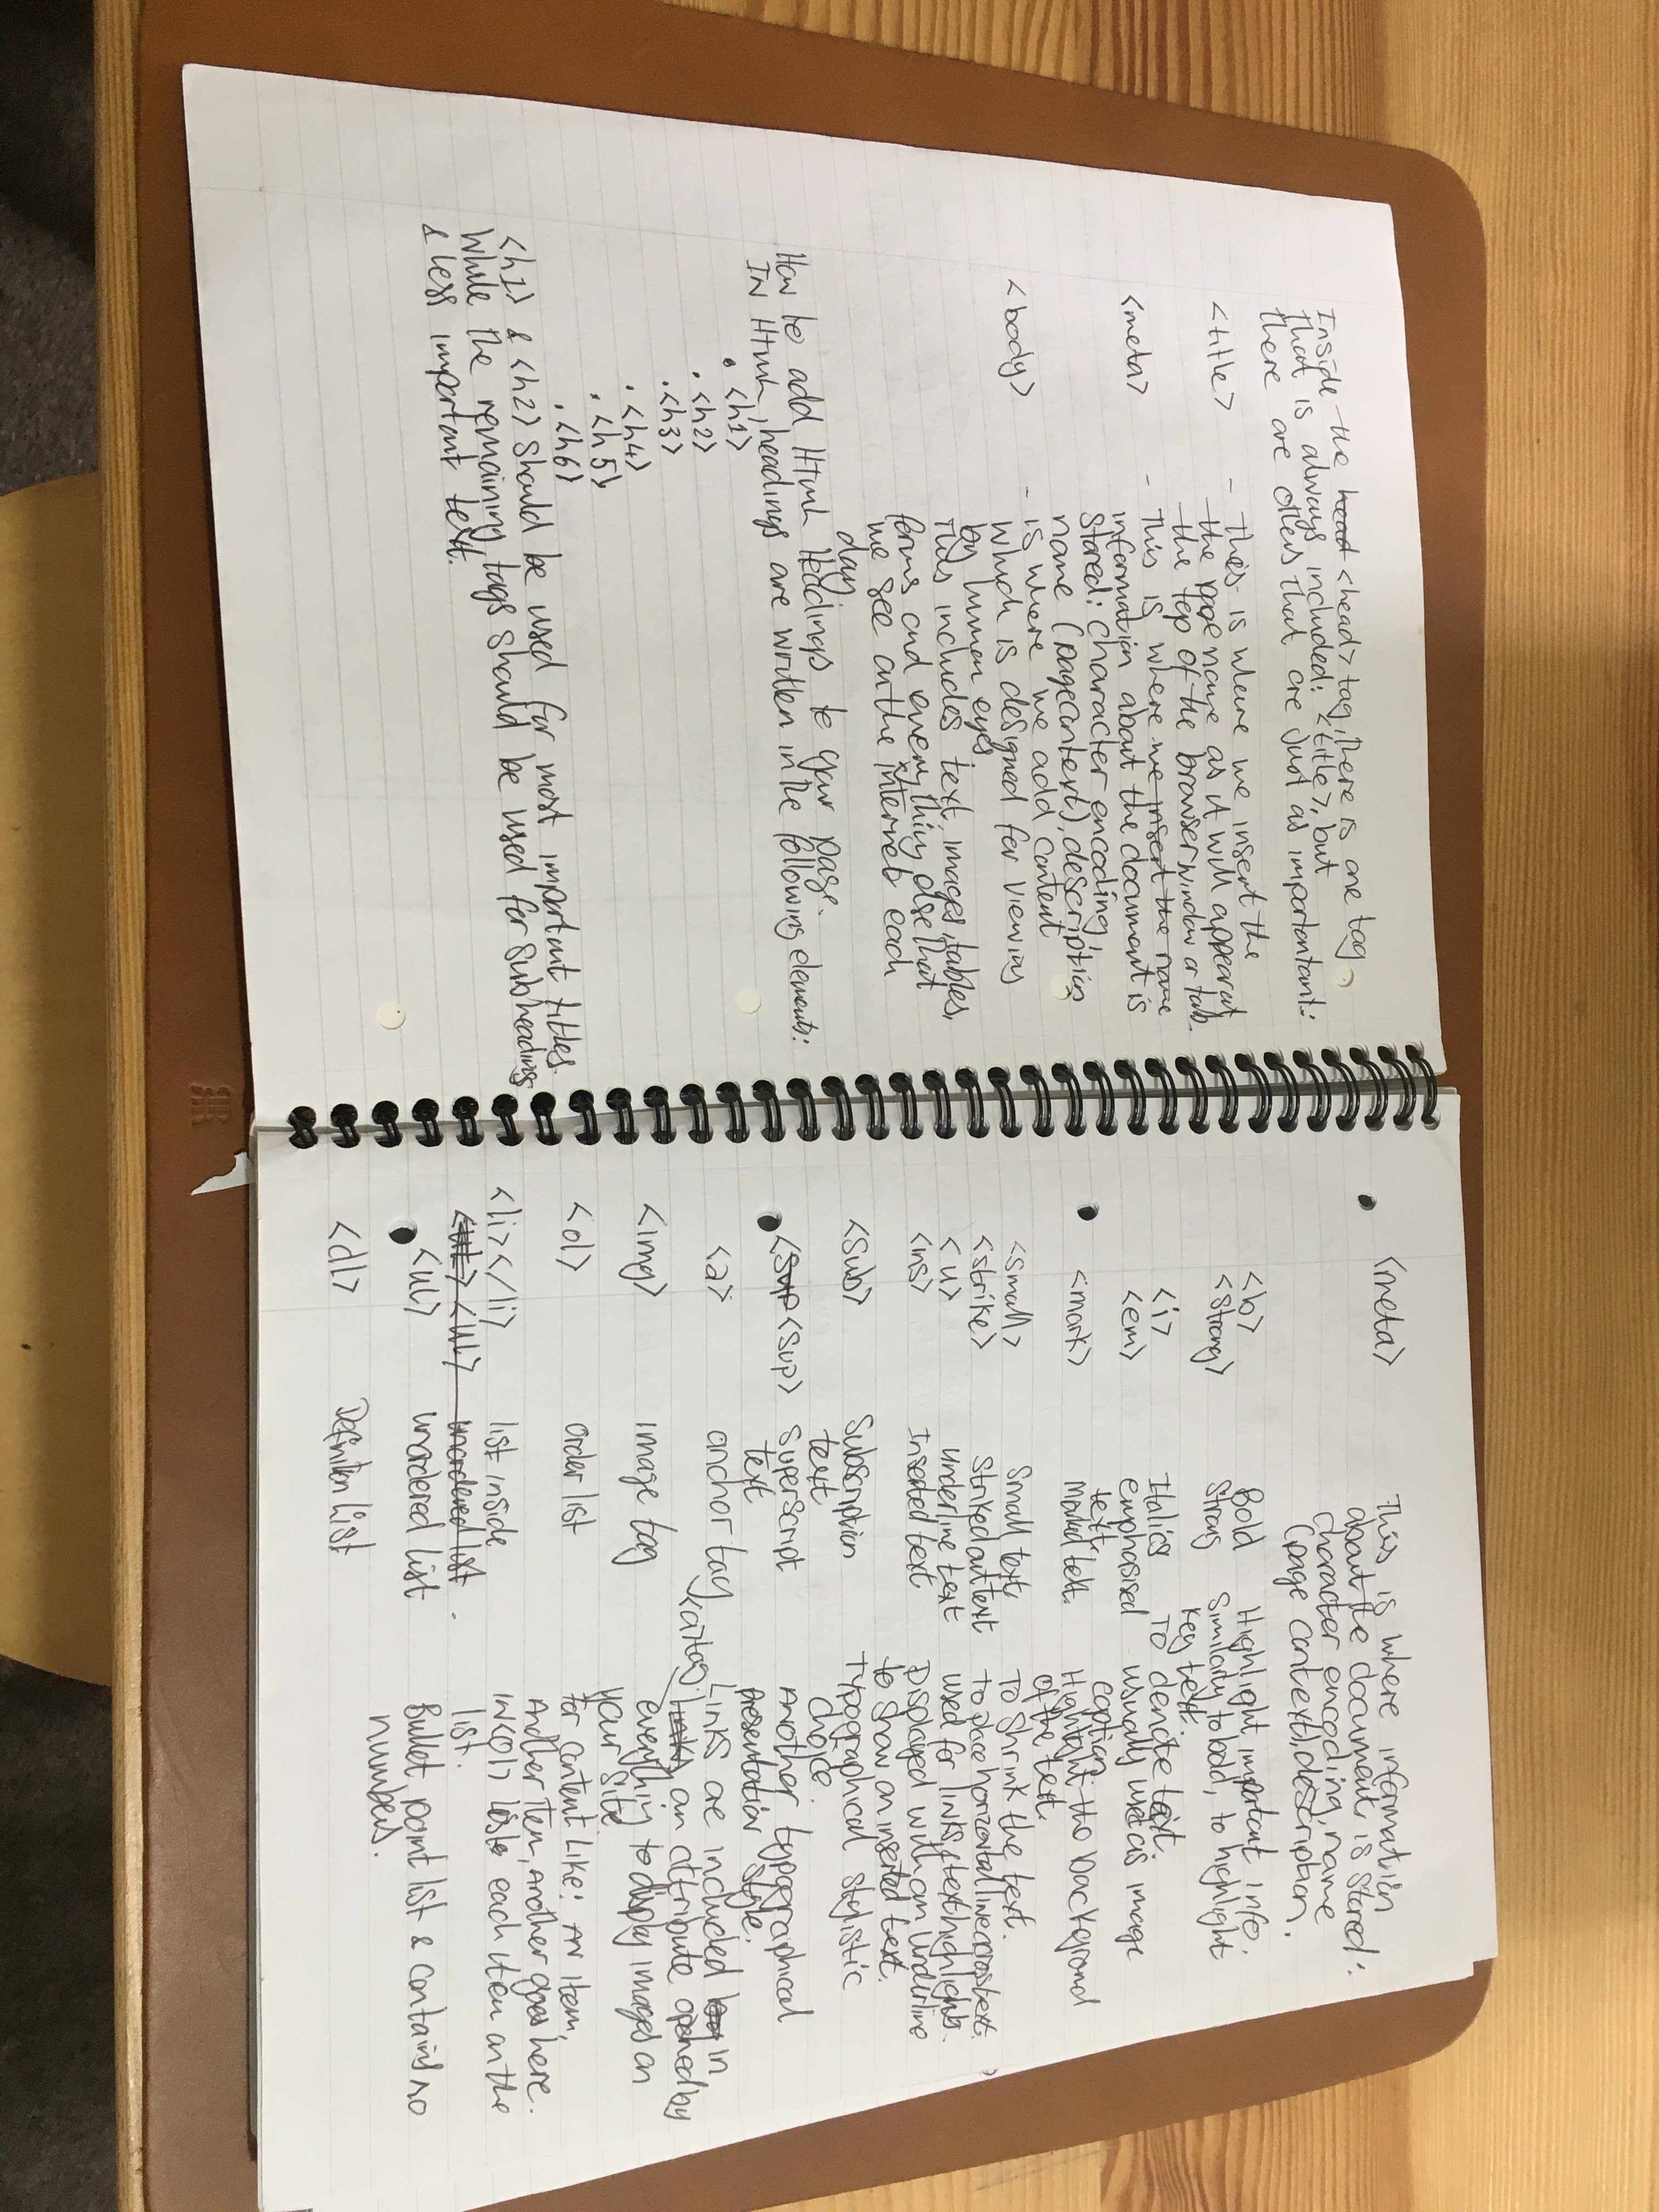 Inside the head <head> tag, there is one tag
that is always included: <title>, but
there are others that are just as importantant:
<title> - this is where we insert the
the page name as it will apperat
the top of the browser window or tab.
<meta> - This is where we insert the name
information about the document is
stored: character encoding,
name (page context), description
<body> - is where we add content
which is designed for viewing
by human eyes.
This includes text, images, tables,
forms and everything else that
we see on the internet each
day.
How to add Html Headings to your page.
IN Html, headings are written in the following elements:
• <h1>
• <h2>
• <h3>
• <h4>
• <h5>
• <h6>
<h1> & <h2> should be used for most important titles
while the remaining tags should be used for subheadings
& less important text.
<meta> This is where information
about the document is stored:
character encoding, name
(page context), description.
<b> Bold Highlight important info.
<strong> strong similarly to bold, to highlight
key text.
<i> Italics To denote text.
<em> emphasised usually used as image
text. caption.
<mark> Marked text. Highlight the background
of the text.
<small> Small text. To shrink the text.
<strike> Striked out text To place horizontal line across text.
<u> underline text used for links & text highlights.
<ins> Inserted text Displayed with an underline
to show an inserted text.
<sub> Subscription Typographical stylistic
text choice.
<sup <sup> Superscript Another typographical
text presentation style.
<a> anchor tag Links are included in
<a> tag. Links, an attribute opened by
<img> image tag everything to display images on
your site
<ol> order list For content like: An item,
Another item, Another goes here.
<li></li> list inside IN <ol> lists each item on the
list.
<ul> <ul> unordered list.
<ul> unordered list Bullet point list & contains no
numbers.
<dl> Definition List